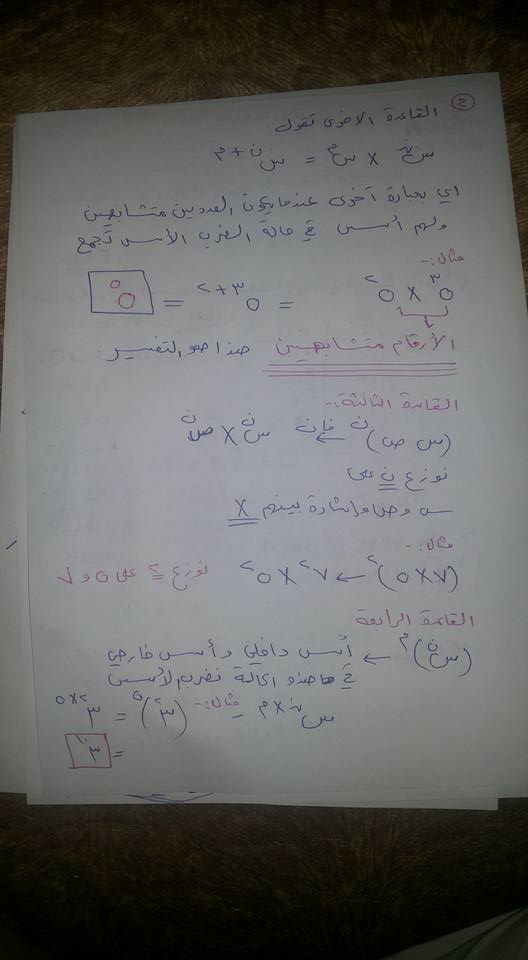 ٢
القاعدة الاخرى تقول
س^ن × س^م = س^ن+م
اي بعبارة أخرى عندما يكون العددين متشابهين
ولهم أسس في حالة الضرب الأسس تجمع
مثال:-
٥^٣ × ٥^٢ = ٥^٣+٢ = ٥^٥
الأرقام متشابهين هذا هو التفسير
القاعدة الثالثة:-
(س ص)^ن فإن ← س^ن × ص^ن
نوزع ن على
س و ص واشارة بينهم ×
مثال:-
(٧×٥)^٢ ← ٧^٢ × ٥^٢ نوزع ٢ على ٥ و ٧
القاعدة الرابعة
(س^ن)^م ← أس داخلي وأس خارجي
في هذه الحالة نضرب الأسس
س^ن×م مثال:- (٣^٢)^٥ = ٣^٢×٥
= ٣^١٠